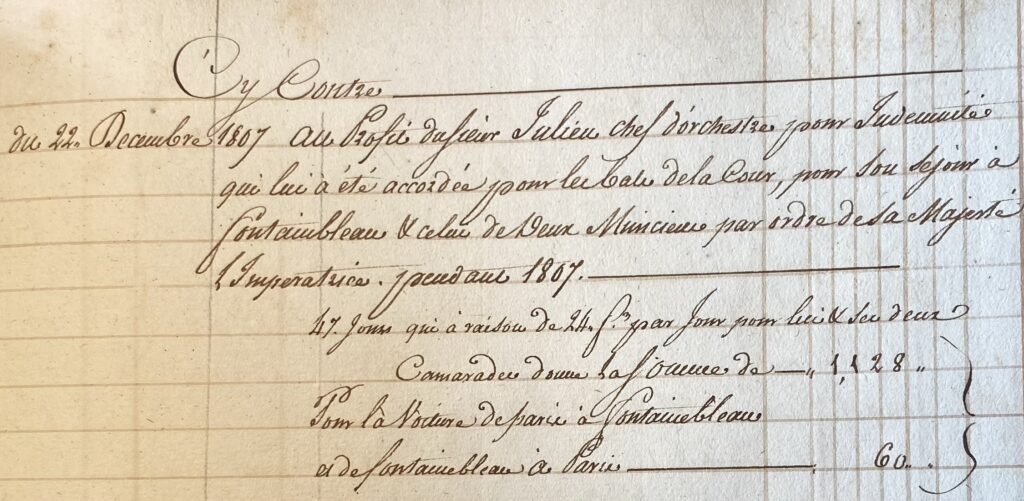 Cy Contre
du 22. Decembre 1807 au Profit du sieur Julien chef d'orchestre pour Indemnité
qui lui à été accordée pour les bals de la Cour, pour son sejour à
fontainebleau & celui de deux Musiciens par ordre de sa Majesté
L'Imperatrice. pendant 1807.
47. Jours qui à raison de 24. f.rs par Jour pour lui & ses deux
Camarades donne la Somme de — „ 1,128 „
Pour la Voiture de paris à fontainebleau
et de fontainebleau à Paris — „ 60. „